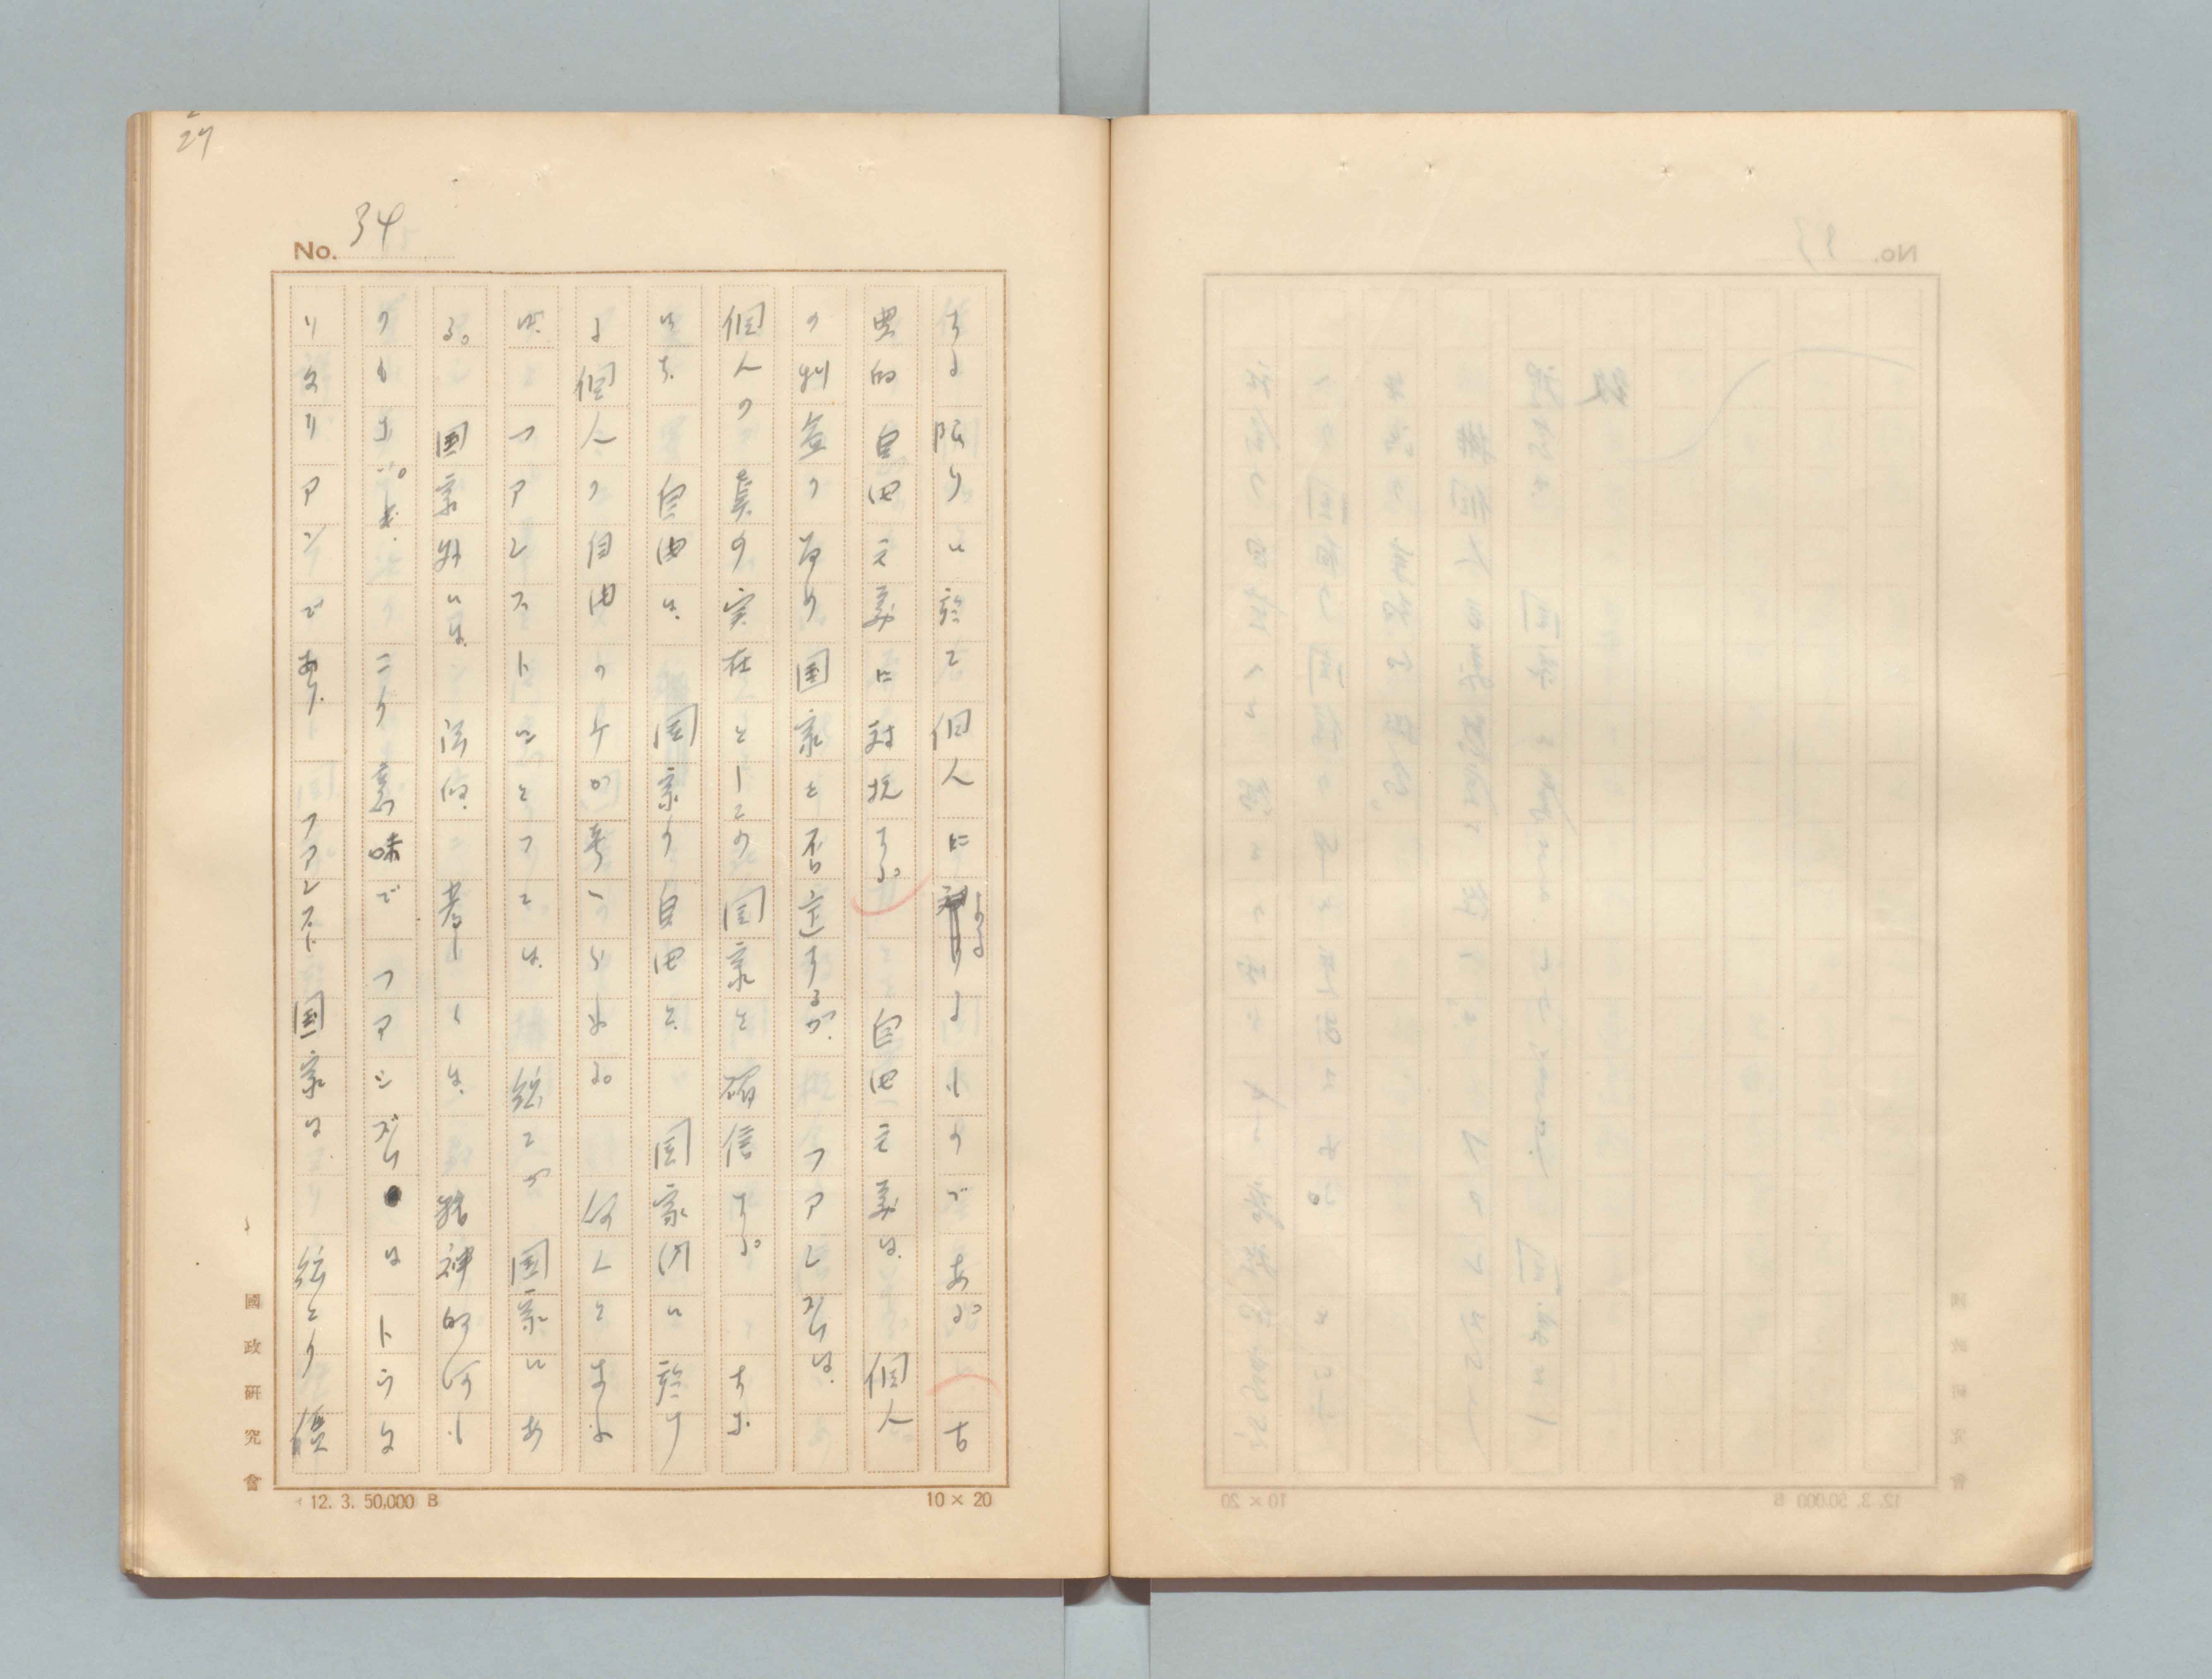 27
No. 34
する限りに於て個人にものである。古
典的自由主義に対抗する。自由主義は、個人
の利益の為め国家を否定するが、ファシズムは、
個人の真の実在としての国家を確信する。すな
はち、自由は、国家の自由と、国家内に於け
る個人の自由のみが考へられる。何んとなれ
ば、ファシストにとつては、総てが国家にあ
る。国家外には、法的、若しくは、精神的何も
のもない。この意味でファシズムはトウタ
リタリアンであり、ファシスト国家は、総
國政研究會
12. 3. 50,000 B
10×20